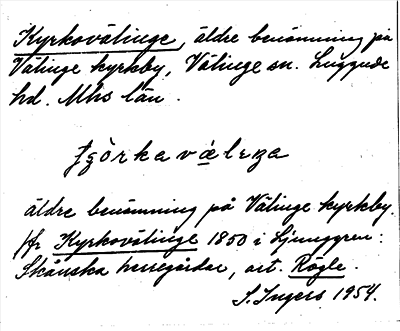 Kyrkovälinge, äldre benämning på
Välinge kyrkby, Välinge sn. Luggude
hd. Mhs län.
äldre benämning på Välinge kyrkby.
Jfr Kyrkovälinge 1850 i Ljunggren:
Skånska herregårdar, art. Rögle.
S. Ingers 1954.